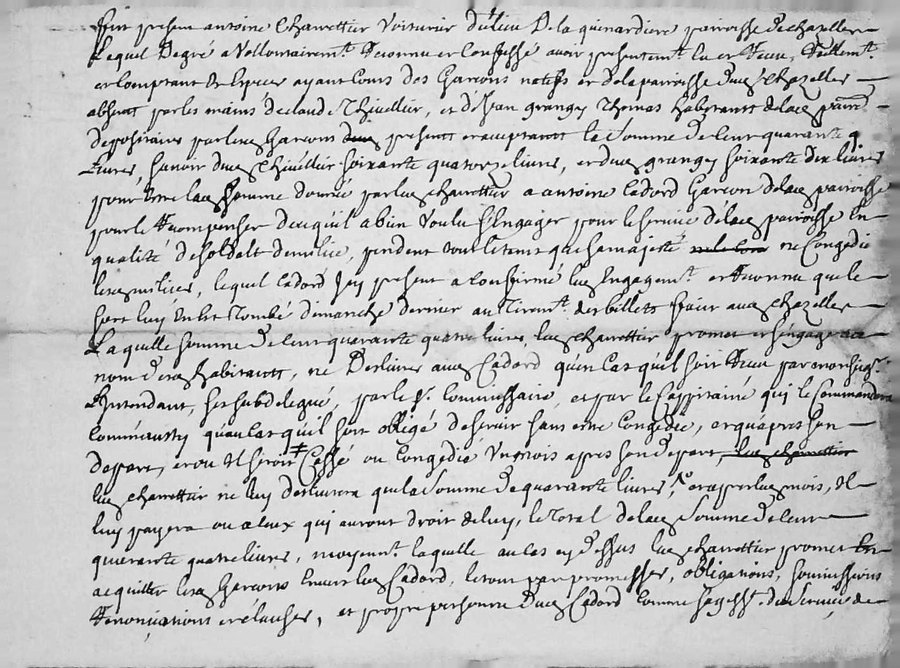 fut présent antoine Charrettier Voiturier du lieu De la guinardiere parroisse de chazelles
Lequel De gré a Vollontairemt. Reconnu et Confessé avoir présentemt. eu et Receu, Réellemt.
et Comptant En Especes ayant Cours des Garçons natifs et de la parroisse dud. Chazelles
absents par les mains de claude Thivellier, et de Jean granges Thomas habitants de lad. parr.
depositaires par lesd. Garçons présents et acceptants la Somme de Cent quarante q.
Livres, Savoir dud. Thivellier Soixante quatorze livres, et dud. granges soixante dix livres
pour Etre lad. Somme donnée par led. charrettier a antoine Cadord Garçon de lad. parroisse
pour le Recompenser de ce qu'il a bien Voulu S'Engager pour le service de lad. parroisse En
qualité de Soldat de milice, pendent tout le tems que Sa majesté ne Congedie
lesd. milices, lequel Cadord Icy présent a Confirmé led. Engagemt. et Reconnu que le
Sort luy En Est Tombé dimanche dernier au Tiremt. des billets fait aud. chazelles
Laquelle somme de Cent quarante quatre livres, led. charrettier promet et s'engage au
nom desd. habitants, ne Deslivrer aud. Cadord qu'en cas qu'il soit Receu par monseigr.
L'Intendant, son subdelegué, par le Sr. Commissaire, et par le Cappitaine qui le Commandera
Comme aussy qu'au Cas qu'il soit obligé de servir sans etre Congedié, et qu'apres son
depart, et ou Il seroit Cassé ou Congedié Un mois apres son depart, led. charrettier
led. charrettier ne luy deslivrera que la Somme de quarante livres, et apres led. mois, Il
luy payera ou a Ceux qui auront droit de luy, le Total de lad. Somme de Cent
quarante quatre livres, moyent. laquelle au Cas cy dessus led. charrettier promet En
acquitter lesd. Garçons Envers led. Cadord, le tout par promesses, obligations, Soumissions
Renonciations et clauses, et propre personne dud. Cadord Comme s'agisst. du service de